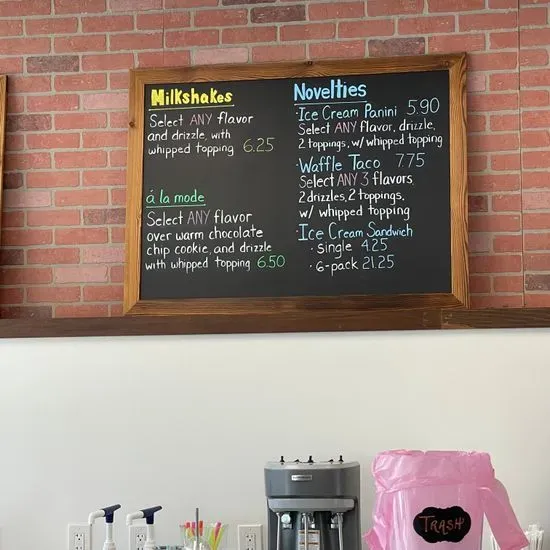 Milkshakes
Select ANY flavor
and drizzle, with
whipped topping 6.25
á la mode
Select ANY flavor
over warm chocolate
chip cookie, and drizzle
with whipped topping 6.50
Novelties
·Ice Cream Panini 5.90
Select ANY flavor, drizzle,
2 toppings, w/ whipped topping
·Waffle Taco 7.75
Select ANY 3 flavors
2 drizzles, 2 toppings,
w/ whipped topping
·Ice Cream Sandwich
· single 4.25
· 6-pack 21.25
TRASH